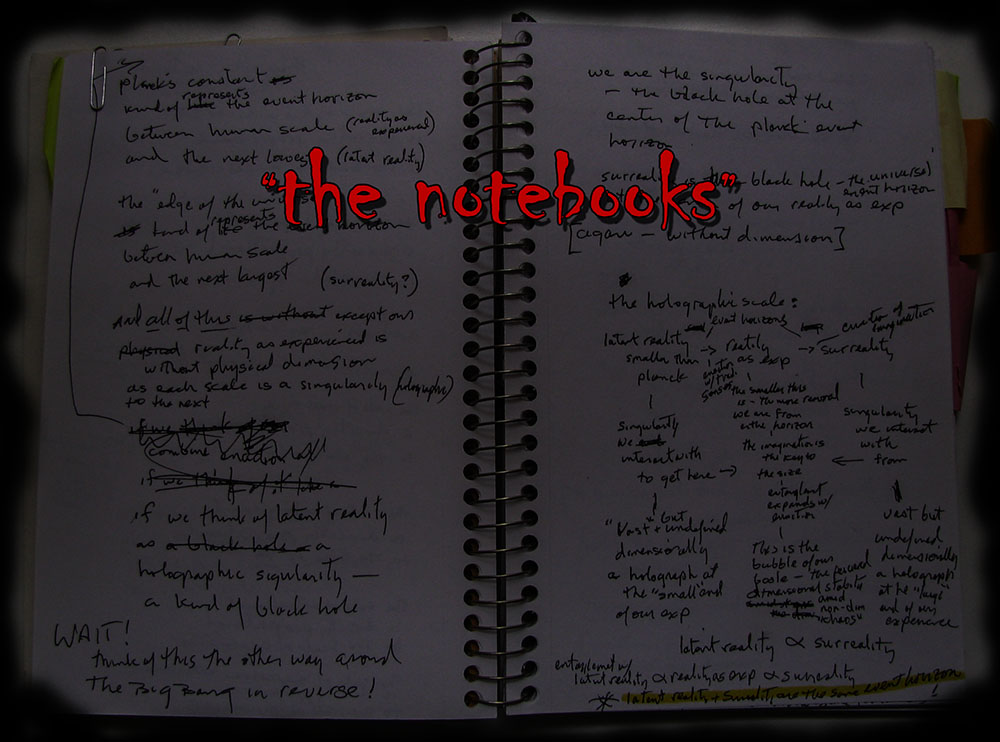 planck's constant
represents
kind of the event horizon
between human scale (reality as experienced)
and the next lowest (latent reality)
"the notebooks"
the "edge of the
represents
kind of the horizon
between human scale
and the next largest (surreality?)
And all of this is without except our
physical reality as experienced is
without physical dimension
as each scale is a singularity (holographic)
to the next
if we think
combine
if we think of it like a
if we think of latent reality
as a black hole a
holographic sigularity —
a kind of black hole
WAIT!
think of this the other way around
The Big Bang in reverse!
we are the singularity
- the black hole at the
center of the planck event
horizon
black hole - the universe)
event horizon
of our reality as exp
[again - without dimension]
the holographic scale:
event horizons
imagination
latent reality -> reality -> surreality
smaller than
planck
as exp
the smaller this
is - the more removed
we are from
the horizon
the imagination is
the key to
the size
expands w/
singularity
we
interact with
to get here ->
singularity
we interact
with
<- from
"Vast + but undefined
dimensionally
a holograph at
the "small end
of our exp
This is the
bubble of our
scale - the
dimensional
amid
non-dim
"chaos"
vast but
undefined
dimensionally
a holograph
at the "large
end of our
experience
latent reality ∝ surreality
latent reality ∝ reality as exp ∝ surreality
* latent reality + surreality are the same event horizon!